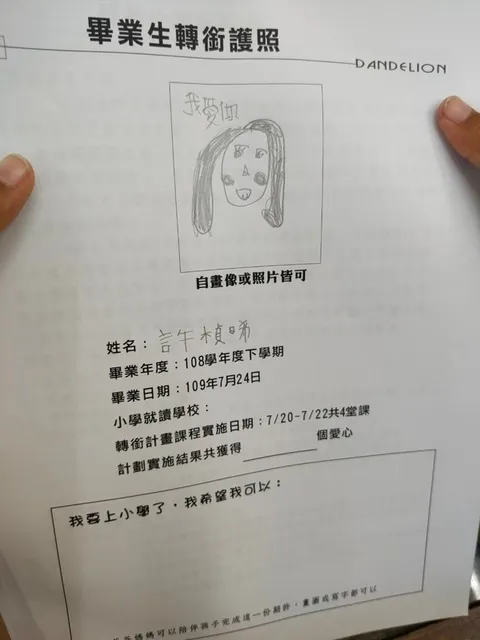 畢業生轉銜護照
DANDELION
我愛你
自畫像或照片皆可
姓名：許楨晞
畢業年度：108學年度下學期
畢業日期：109年7月24日
小學就讀學校：
轉銜計畫課程實施日期：7/20-7/22共4堂課
計劃實施結果共獲得＿＿＿＿＿個愛心
我要上小學了，我希望我可以：
爸爸媽媽可以陪伴孩子完成這一份期許，畫圖或寫字都可以